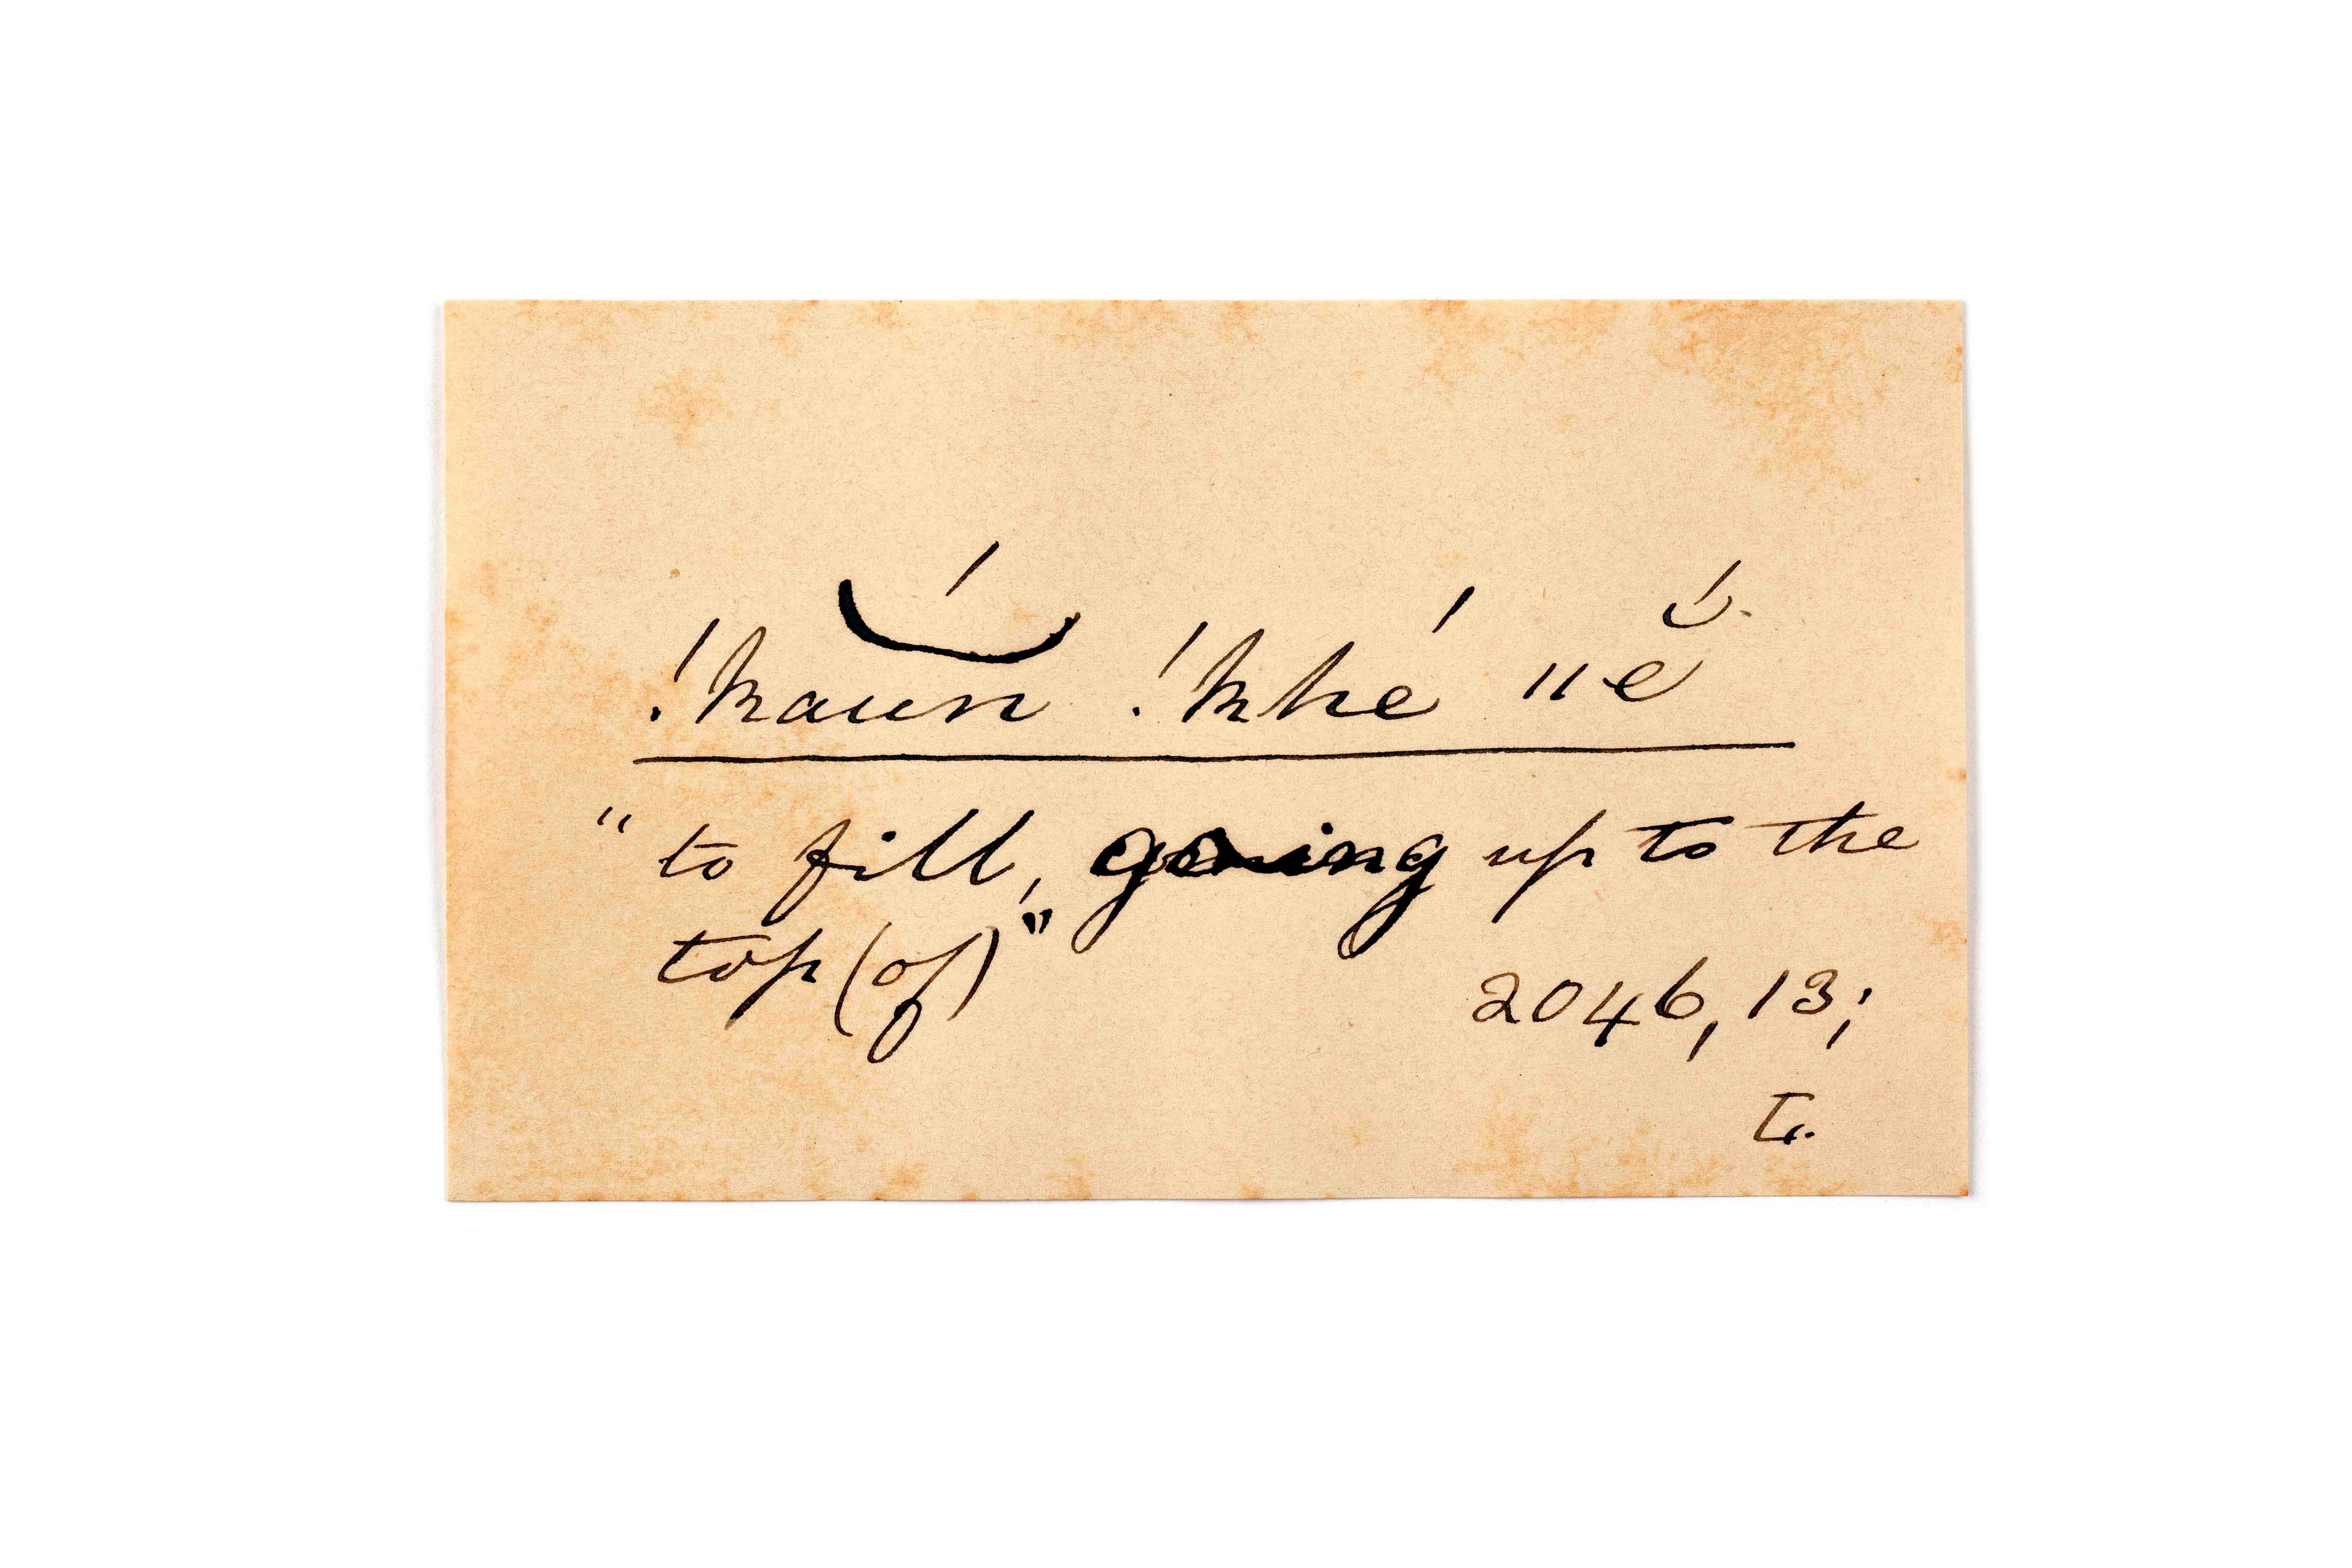 !kaŭ́n !khé ǁĕ́
"to fill, going up to the
top (of)"
2046, 13;
L.